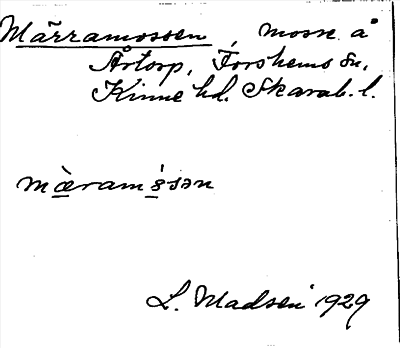 Märramossen, mosse å
Årtorp, Forshems sn,
Kinne hd. Skarab. l.
L. Madsen 1929